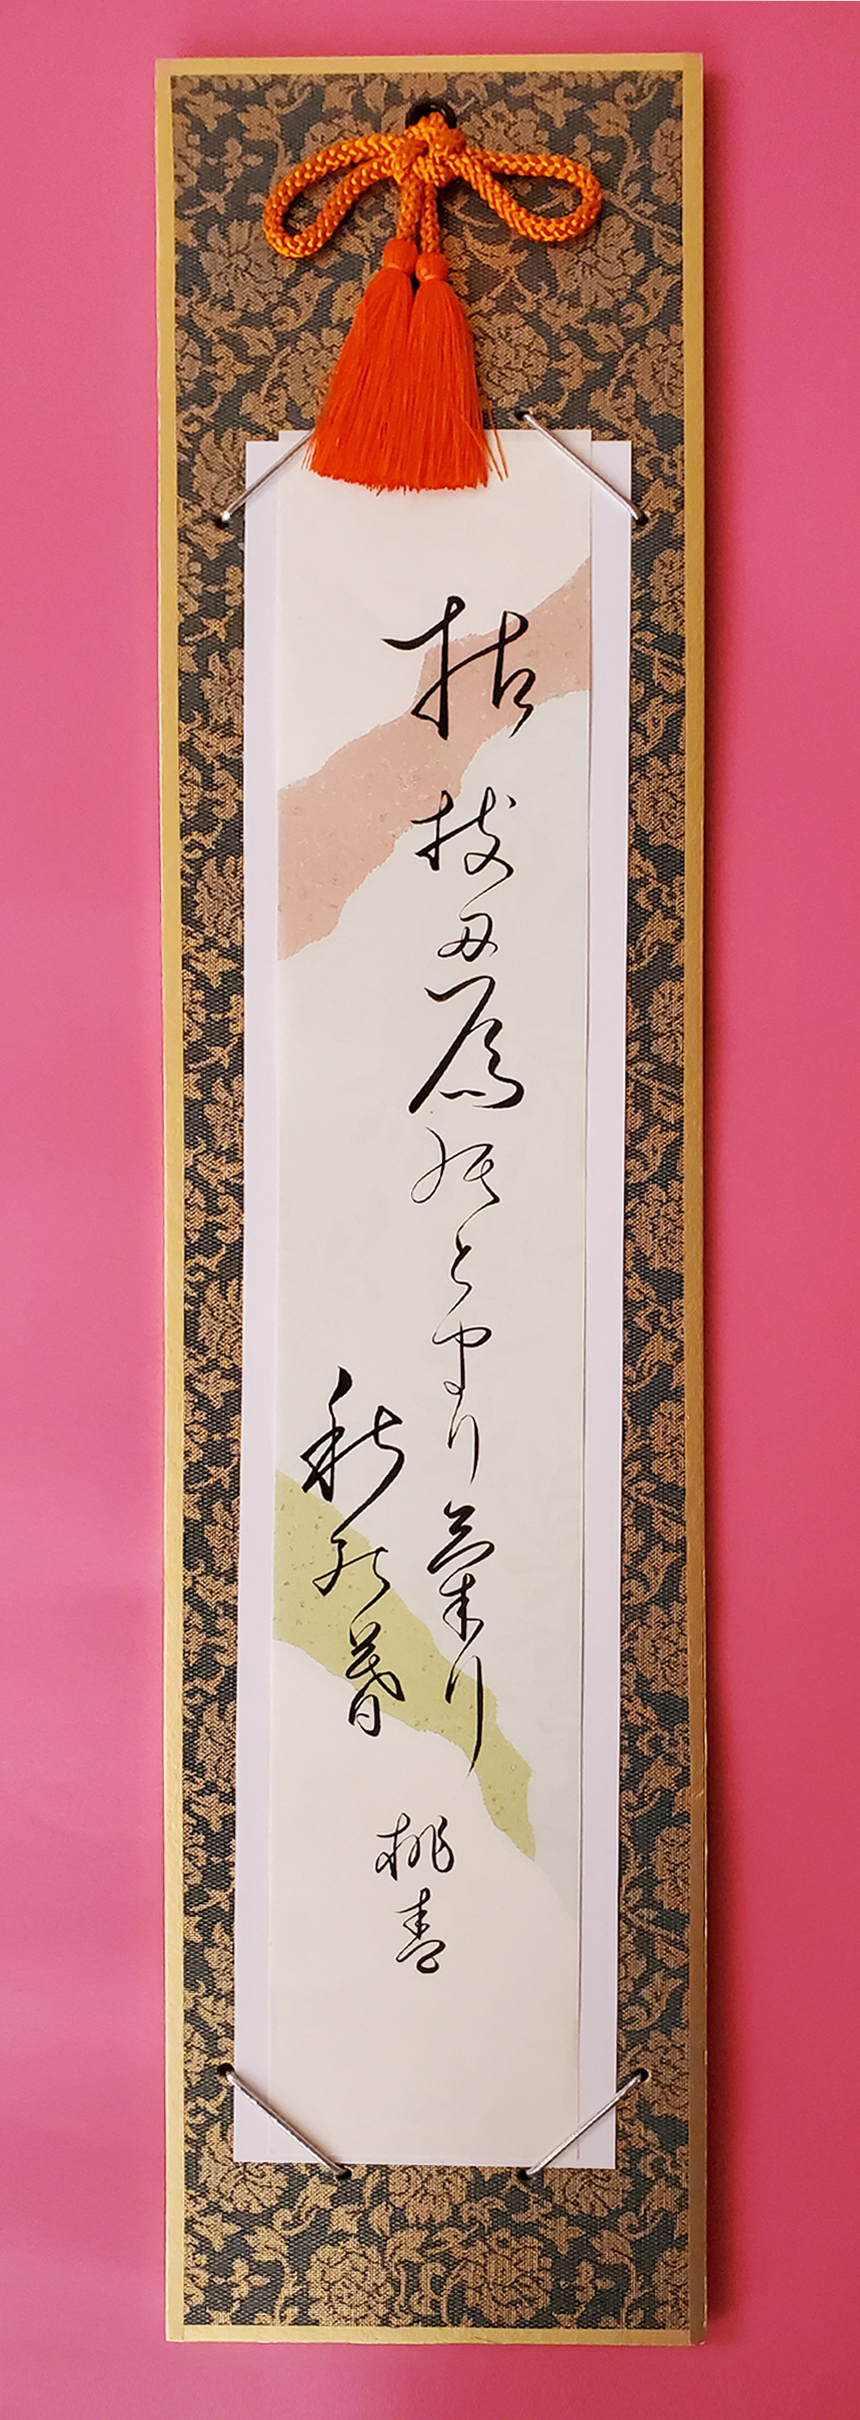 枯枝に烏のとまりけり
秋の暮
桃青